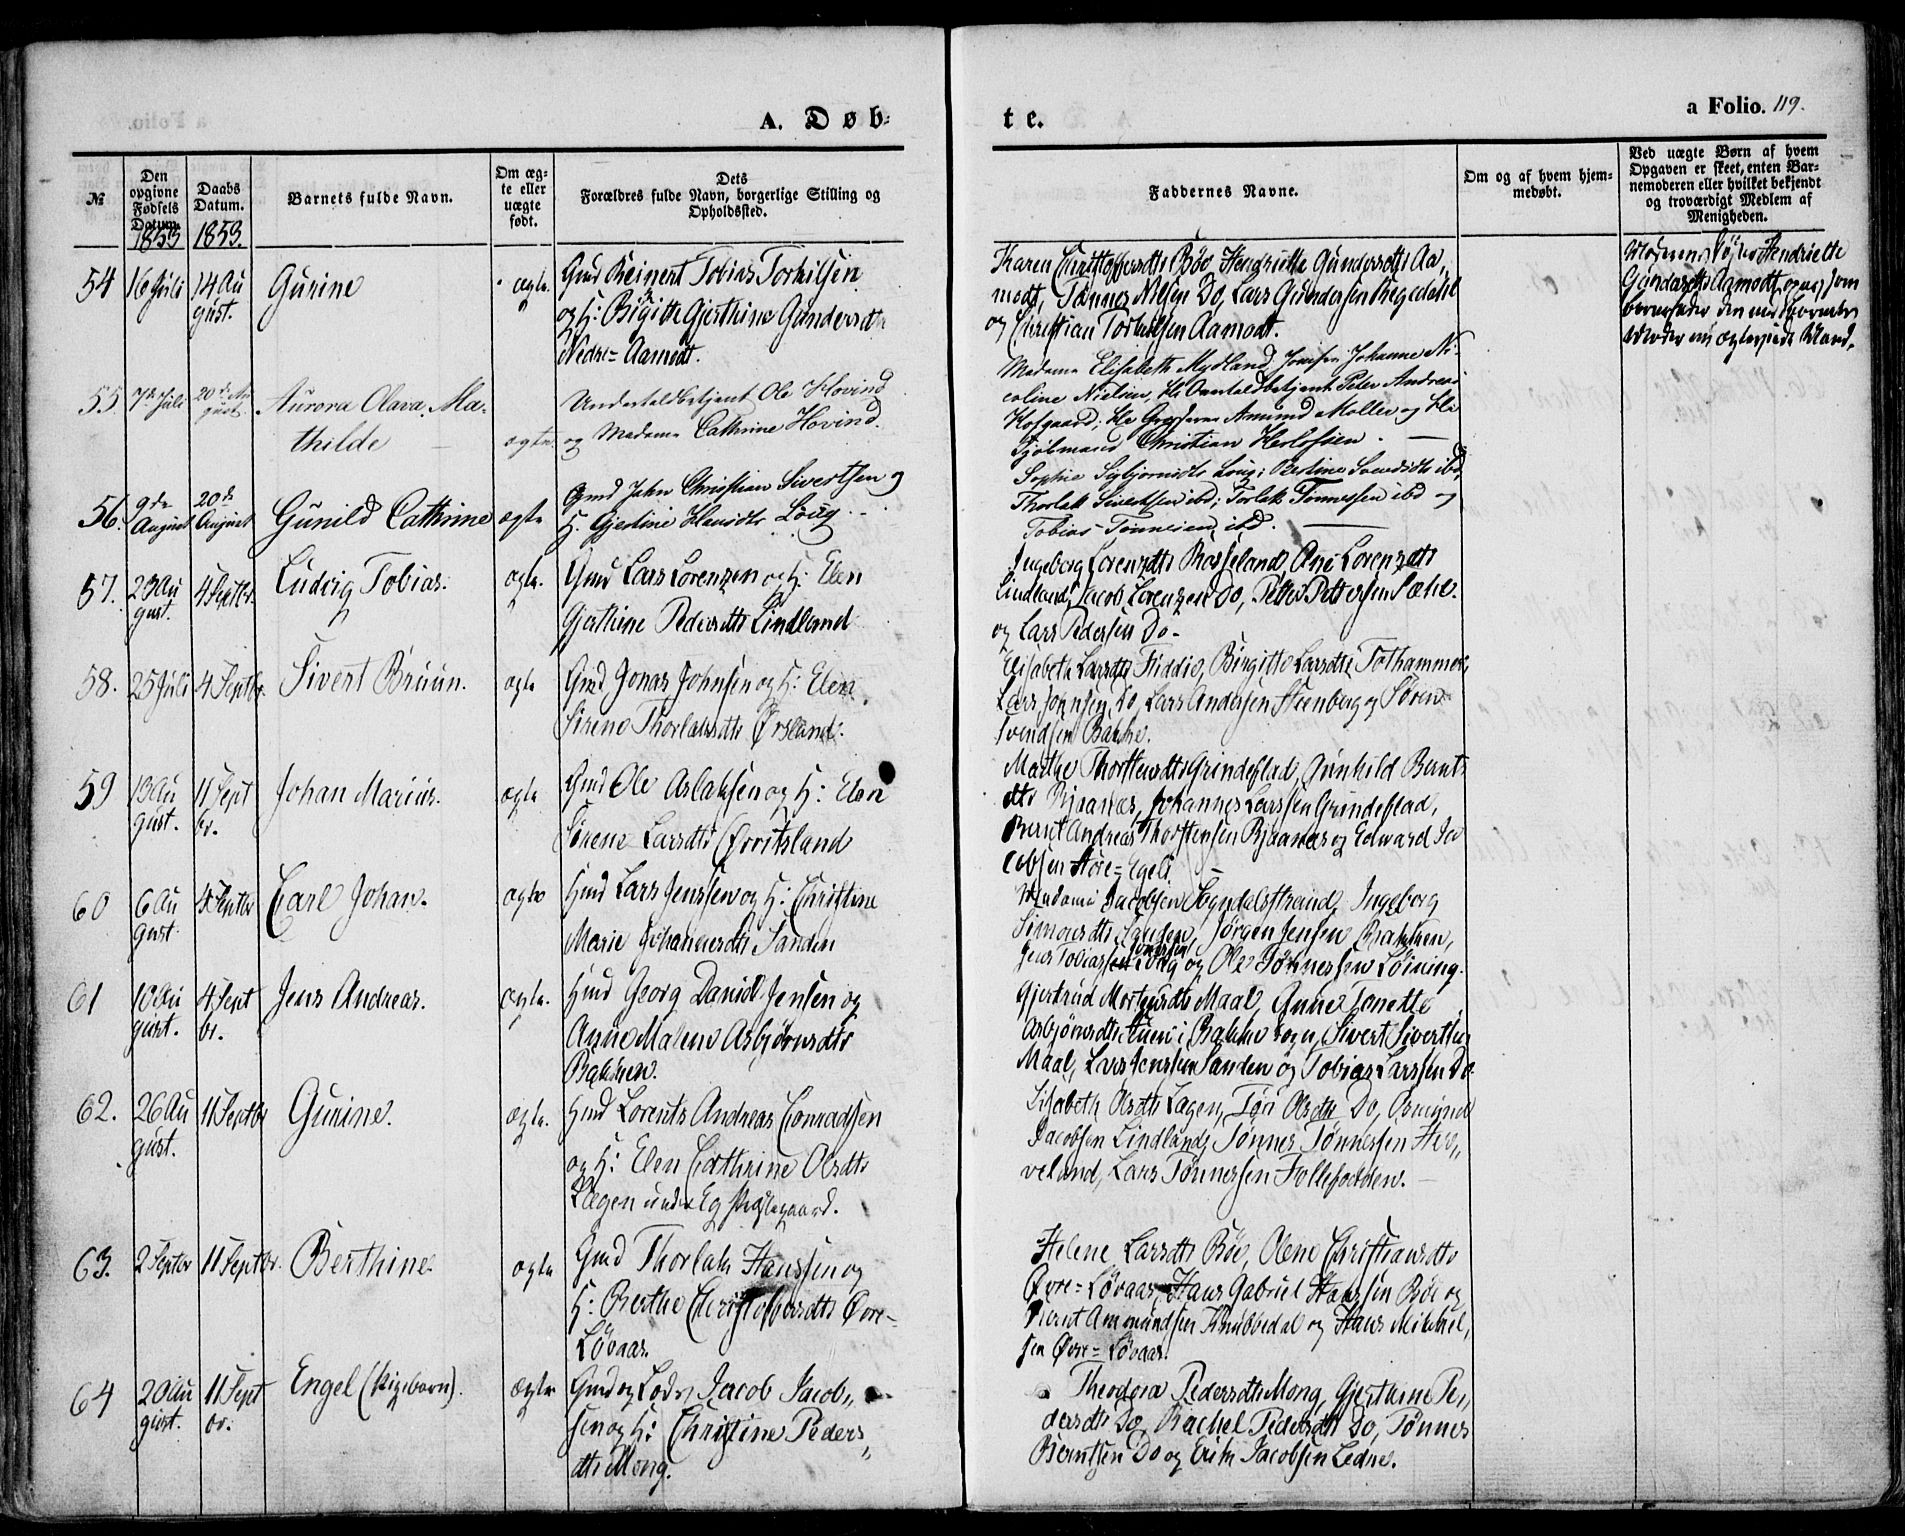 A. Døb-
te.
a Folio. 119.
№
Den opgivne Fødsels Datum.
Daabs Datum.
Barnets fulde Navn.
Om ægte eller uægte født.
Dets
Forældres fulde Navn, borgerlige Stilling og Opholdssted.
Faddernes Navne.
Om og af hvem hjemmedøbt.
Ved uægte Børn af hvem Opgaven er skeet, enten Barnemoderen eller hvilket bekjendt og troværdigt Medlem af Menigheden.
1853 1853.
54 16 Juli 14 Au
gust.
Gurine
ægte.
Gmd Reinert Tobias Torkilsen
og H: Birgitte Gjerthine Gundersdtr
Nedre=Aamodt.
Karen Christoffersdtr Bøe Henriette Gundersdtr Aa,,
modt, Tønnes Nilsen Do, Lars Gundersen Regedahl
og Christian Torkilsen Aamodt.
Moderens Søster Henriette
Gundersdtr Aamodt, som
Moder ægteviede Mand.
55 7de Juli 20de Au
gust.
Aurora Olava Ma-
thilde
ægte
Undertoldbetjent Ole Hovind
og Madame Cathrine Hovind.
Madame Elisabeth Mydland, Jomfru Johanne Ni-
coline Nielsen, Hr Overtoldbetjent Peter Andreas
Hofgaard, Hr Amund Møller og Hr
Christian Herlofsen.
56. 9de
August
20de
August
Gunild Cathrine
ægte
Gmd John Christian Sivertsen og
H. Gjertine Hansdtr Loug
Sophie Sigbjørnsdtr Loug; Bertine Svendsdtr ibd;
Thorlak Sivertsen ibd; Torlak Tønnessen ibd og
Tobias Tønnesen ibd.
57. 23 Au
gust.
4 Septbr.
Ludvig Tobias.
ægte.
Gmd Lars Lorenzen og H: Elen
Gjerthine Pedersdtr Lindland
Ingeborg Lorenzdtr Rosseland, Ane Lorenzdtr
Lindland, Jacob Lorenzen Do, Petter Pettersen
og Lars Pedersen Do.
58. 25 Juli 4 Septbr.
Sivert Bruun.
ægte
Gmd Jonas Johnsen og H: Elen
Sirene Thorlaksdtr Ørsland.
Elisabeth Larsdtr Fiddie, Birgitte Larsdtr Tothammer,
Lars Johnsen Do, Lars Andersen Steenberg og Søren
Svendsen Bakke.
59 13 Au
gust.
11 Sept
br.
Johan Marius.
ægte
Gmd Ole Aslaksen og H: Elen
Sirene Larsdtr Ørvitsland
Marthe Thorstensdtr Grindeflad, Gunhild Bernts
dtr Rjaanæs, Johannes Larssen Grindeflad,
Bernt Andreas Thorstensen Rjaanæs og Edward Ja
cobsen Støre=Egeli.
60 6 Au
gust
4 Septbr
Carl Johan.
ægte
Hmd Lars Jenssen og H: Christine
Marie Johannesdtr Sanden
Madame Jacobsen Sogndalsstrand, Ingeborg
Simonsdtr Sanden, Jørgen Jensen Bakken,
Jens Tobiassen og Ole Tønnessen Løining.
61 10 Au
gust.
4 Sept
br.
Jens Andreas.
ægte.
Hmd Georg Daniel Jensen og
Anne Malene Asbjørnsdtr
Bakken.
Gjertrud Mortensdtr Maal, Anne Tonette
Asbjørnsdtr Stuen i Bakke Sogn, Sivert Sivertsen
Maal, Lars Jenssen Sanden og Tobias Larssen Do
62. 26 Au
gust.
11 Septbr
Gunine.
ægte.
Hmd Lorents Andreas Conradsen
og H: Elen Cathrine Olsdtr
Lægen under Eg Præstegaard.
Lisabeth Olsdtr Lægen, Tøri Olsdtr Do, Osmund
Jacobsen Lindland, Tønnes Tønnessen Hes,,
veland, Lars Tønnessen Follesodden.
63. 2 Septbr 11 Septbr.
Berthine
ægte
Gmd Thorlak Hanssen og
H: Berthe Christoffersdtr Øvre-
Løvaas.
Helene Larsdtr Bøe, Olene Christiansdtr
Øvre=Løvaas, Hans Gabriel Hanssen Bøe og
Bernt Ammundsen Knubbedal og Hans Mikkel,,
sen Øvre=Løvaas.
64 20 Au
gust.
11 Sept
br.
Engel (Pigebarn).
ægte
Gmd og Lods Jacob Jacob,,
sen og H: Christine Peders,,
dtr Mong.
Theodora Pedersdtr Mong, Gjerthine Pe,,
dersdtr Do, Rachel Pedersdtr Do, Tønnes
Berntsen Do og Erik Jacobsen Ledne.